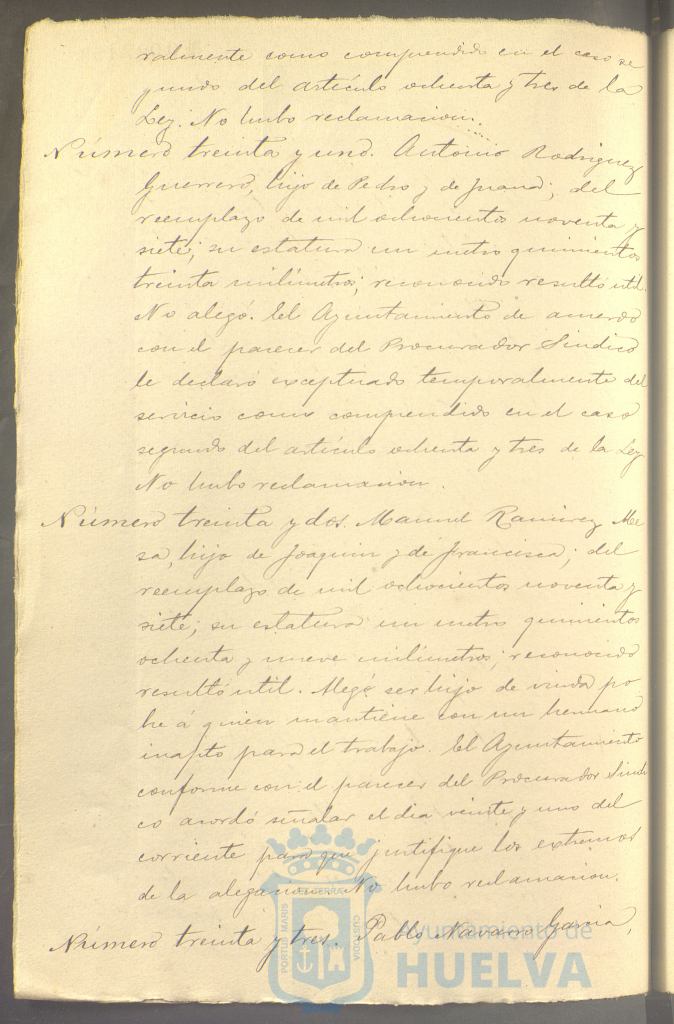 ralmente como comprendido en el caso se
gundo del artículo ochenta y tres de la
Ley. No hubo reclamacion.
Número treinta y uno. Antonio Rodriguez
Guerrero, hijo de Pedro y de Juana; del
reemplazo de mil ochocientos noventa y
siete; su estatura un metro quinientos
treinta milímetros; reconocido resultó util.
No alegó. El Ayuntamiento de acuerdo
con el parecer del Procurador Sindico
le declaró exceptuado temporalmente del
servicio como comprendido en el caso
segundo del artículo ochenta y tres de la Ley
No hubo reclamacion.
Número treinta y dos. Manuel Ramirez Me
sa, hijo de Joaquin y de Francisca; del
reemplazo de mil ochocientos noventa y
siete; su estatura un metro quinientos
ochenta y nueve milímetros; reconocido
resultó util. Alegó ser hijo de viuda po
bre á quien mantiene con un hermano
inapto para el trabajo. El Ayuntamiento
conforme con el parecer del Procurador Sindi
co acordó señalar el dia veinte y uno del
corriente para que justifique los extremos
de la alegacion. No hubo reclamacion.
Número treinta y tres. Pablo Navarro Garcia,
PORTUS MARIS ET TERRÆ CUSTODIA
Ayuntamiento de
HUELVA